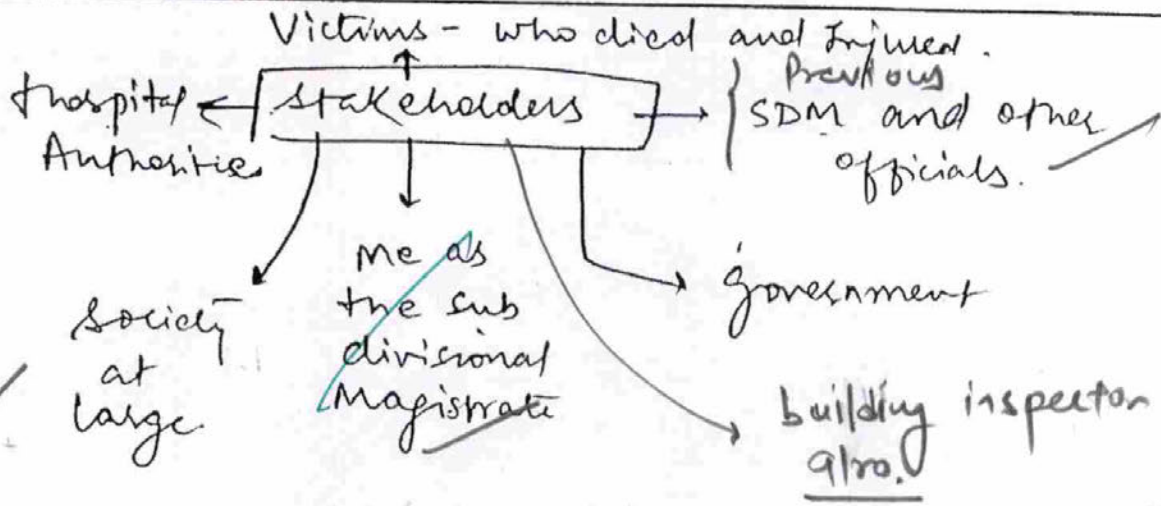 Victims - who died and Injured.
Hospital Authorities
Stakeholders
Previous
SDM and other
officials.
Society
at
large
Me as
the sub
divisional
Magistrate
government
building inspector
also.